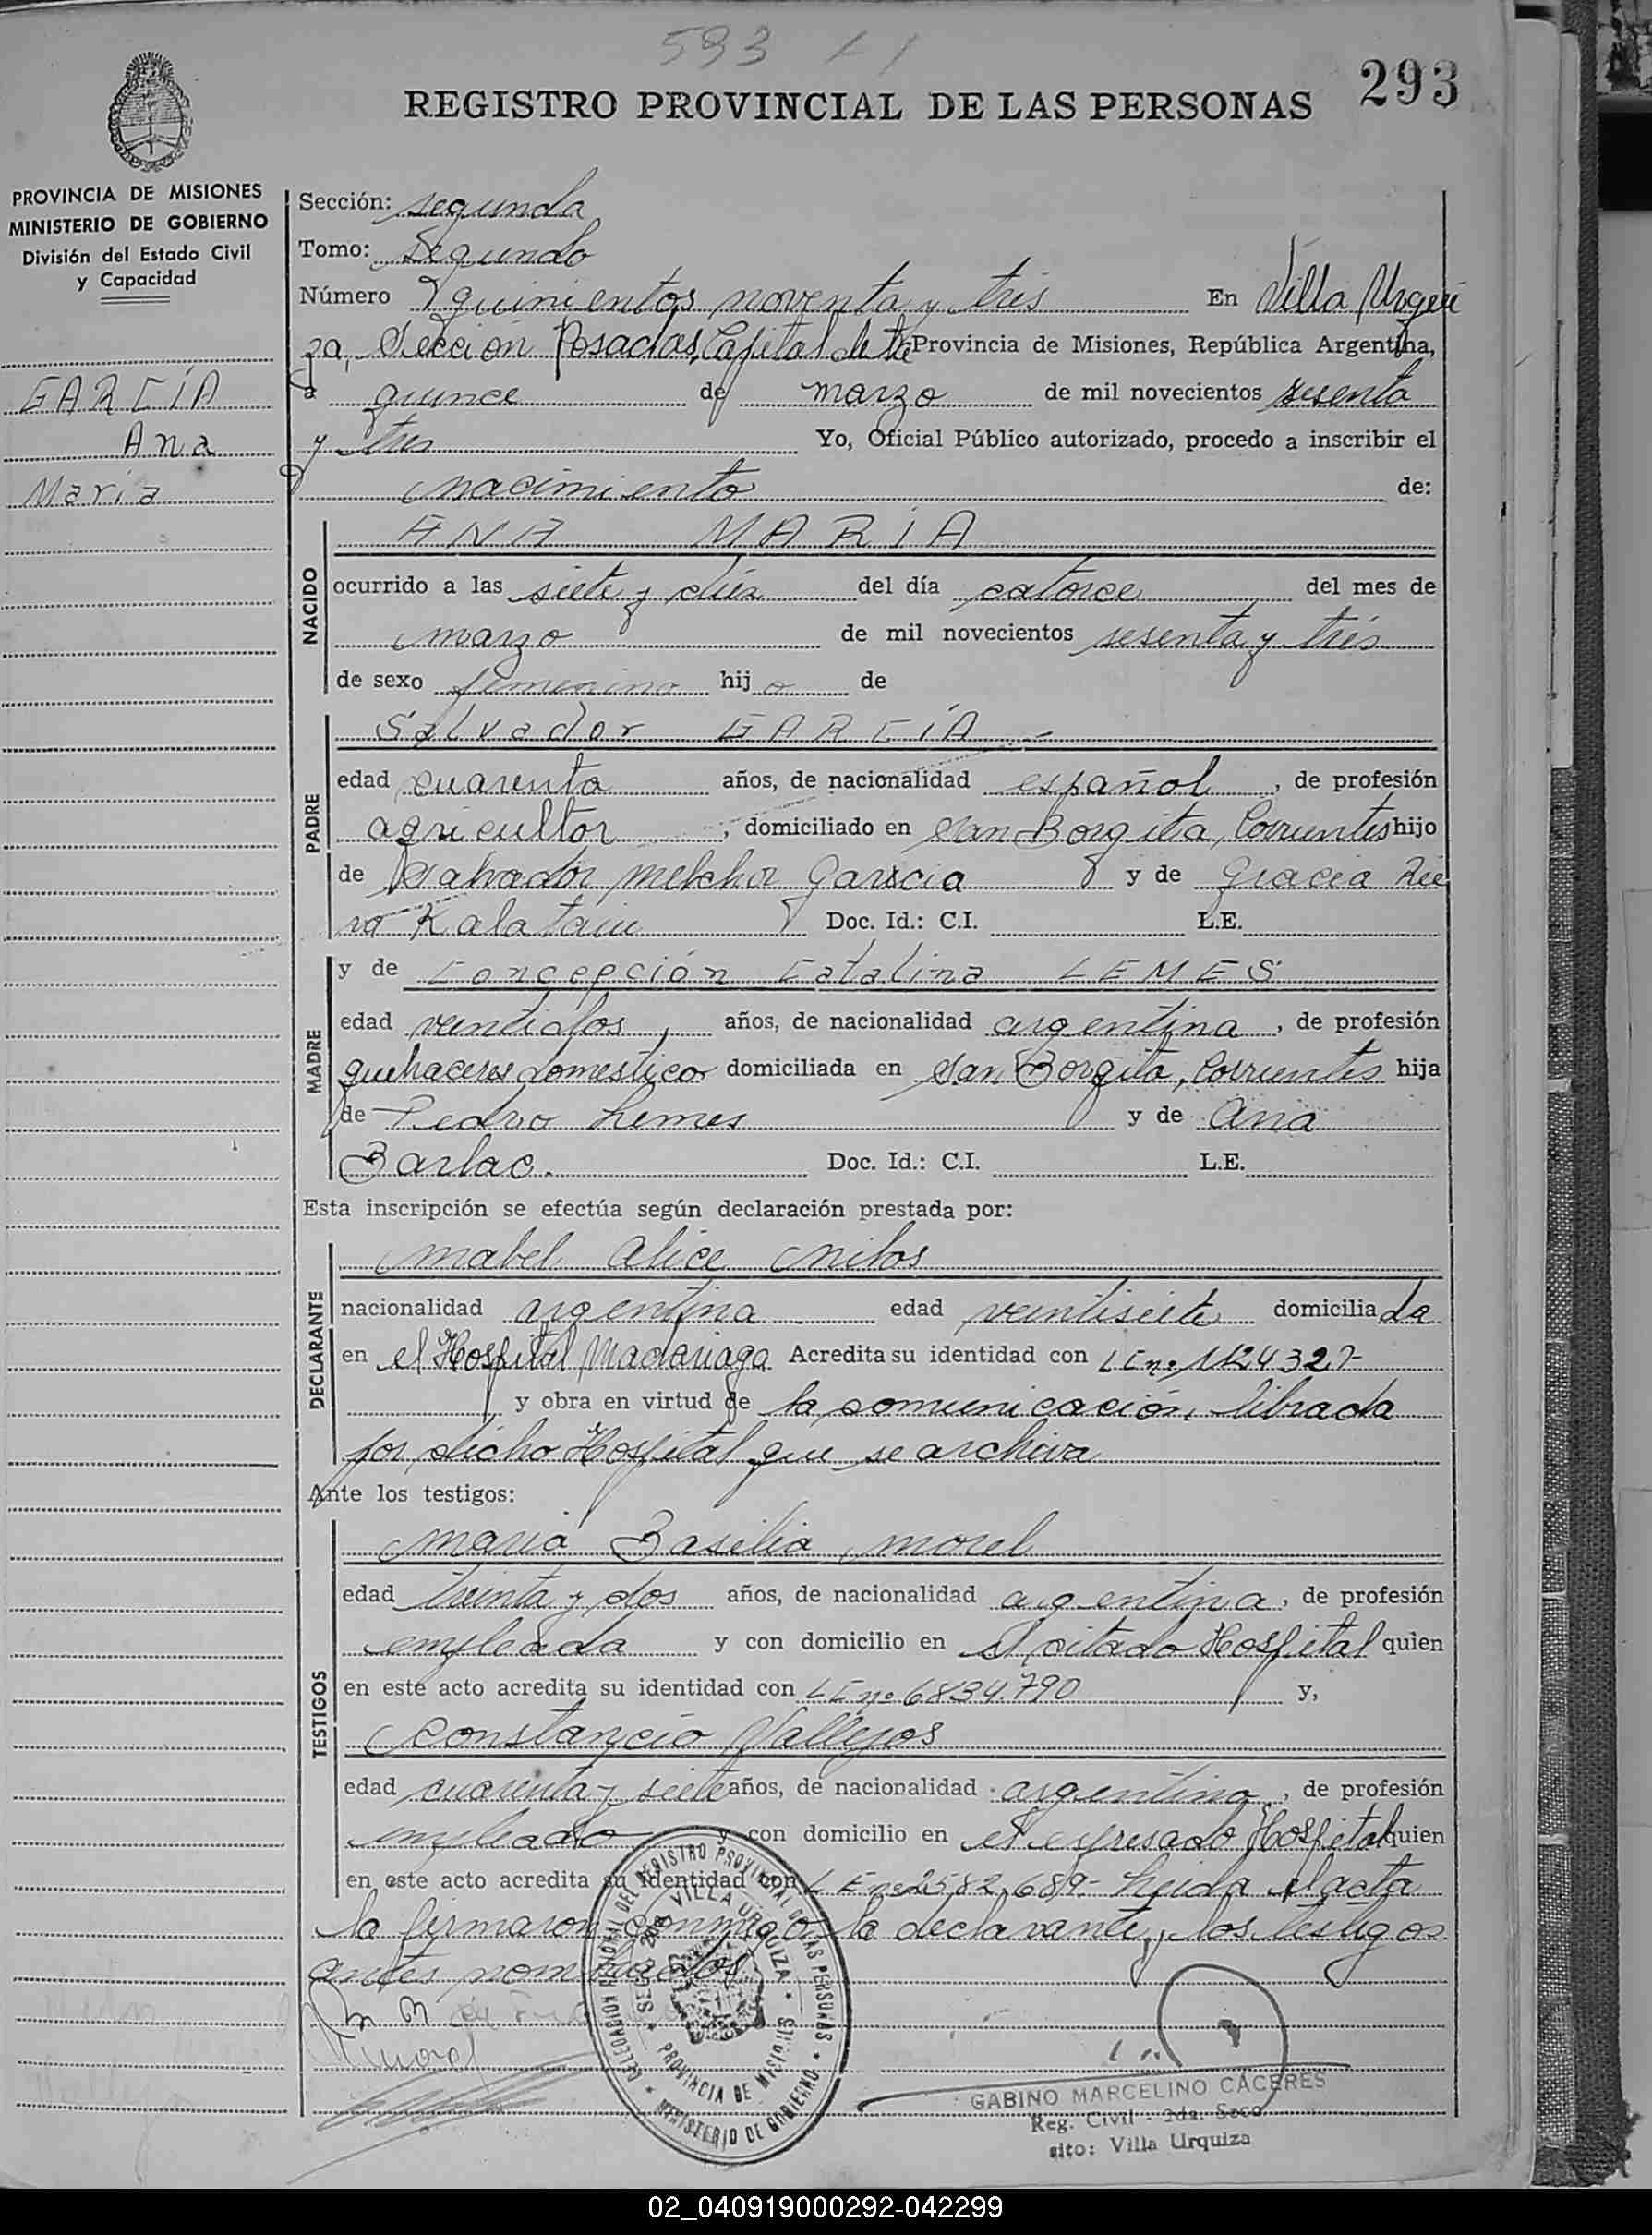 593
293
REGISTRO PROVINCIAL DE LAS PERSONAS
PROVINCIA DE MISIONES
MINISTERIO DE GOBIERNO
División del Estado Civil
y Capacidad
GARCÍA
Ana
María
Sección: segunda
Tomo: Segundo
Número quinientos noventa y tres En Villa Urqui
za, Sección Posadas, Capital de la Provincia de Misiones, República Argentina,
a quince de marzo de mil novecientos sesenta
y tres Yo, Oficial Público autorizado, procedo a inscribir el
nacimiento de:
NACIDO
ANA MARÍA
ocurrido a las siete y diez del día catorce del mes de
marzo de mil novecientos sesenta y tres
de sexo femenino hijo de
PADRE
Salvador GARCÍA -
edad cuarenta años, de nacionalidad español, de profesión
agricultor, domiciliado en San Borgita, Corrientes hijo
de Salvador Melchor García y de Gracia
Doc. Id.: C.I. L.E.
MADRE
y de Concepción Catalina LEMES
edad veintidos, años, de nacionalidad argentina, de profesión
quehaceres domestico domiciliada en San Borgita, Corrientes hija
de Pedro Lemes y de Ana
Barlac. Doc. Id.: C.I. L.E.
Esta inscripción se efectúa según declaración prestada por:
DECLARANTE
Mabel Alice
nacionalidad argentina edad veintisiete domiciliada
en el Hospital Madariaga Acredita su identidad con
y obra en virtud de la comunicación librada
por dicho Hospital que se archiva
Ante los testigos:
TESTIGOS
María Basilia Morel
edad treinta y dos años, de nacionalidad argentina, de profesión
empleada y con domicilio en el citado Hospital quien
en este acto acredita su identidad con 6834.790 y,
Constancio Vallejos
edad cuarenta y siete años, de nacionalidad argentino, de profesión
empleado y con domicilio en el expresado Hospital quien
en este acto acredita su identidad con 2582.689.- Leida el acta
la firmaron conmigo la declarante y los testigos
antes nombrados
DELEGACION REGIONAL DEL REGISTRO PROVINCIAL DE LAS PERSONAS
SEC. 2da VILLA URQUIZA
PROVINCIA DE MISIONES
MINISTERIO DE GOBIERNO
GABINO MARCELINO CÁCERES
Reg. Civil - 2da. Secc
sito: Villa Urquiza
02_040919000292-042299